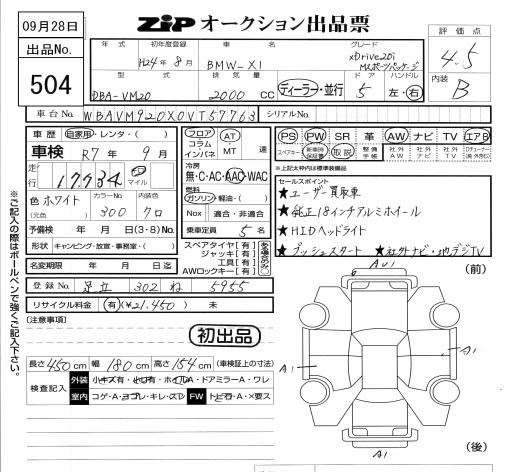 09月28日
出品No.
504
ZIP オークション出品票
評価点
4.5
内装
B
年式 初年度登録 車名 グレード
H24年8月 BMW-X1 xDrive20i
Mスポーツパッケージ
型式 排気量 ドア ハンドル
DBA-VM20 2000 CC ディーラー・並行 5 左・右
車台No. WBAVM920X0VT57768 シリアルNo.
車歴 自家用・レンタ・( )
車検 R7年9月
走行 マイル
色 ホワイト カラーNo. 内装色
(元色) 300 クロ
予備検 年 月 日(3・8)No.
形状 キャンピング・放食・事務室・( )
名変期限 年 月 日迄
フロア AT
コラム MT 速
インパネ
冷房
無・C・AC・AAC・WAC
燃料
ガソリン・軽油・( )
Nox 適合・非適合
乗車定員 5 名
スペアタイヤ[有]
ジャッキ[有]
工具[有]
AWロックキー[有]
PS PW SR 革 AW ナビ TV エアB
スペアキー 新車時保証書 取説 整備手帳 社外AW 社外ナビ 社外TV
※上記☆枠内は標準装備品
セールスポイント
★ユーザー買取車
★純正18インチアルミホイール
★HIDヘッドライト
★プッシュスタート ★社外ナビ・地デジTV
登録No. 足立 302 ね 5955
リサイクル料金 (有)(¥21,450) 未
[注意事項]
初出品
長さ450cm 幅180cm 高さ154cm (車検証上の寸法)
検査記入
外装 小キズ有・ヒビ有・ホイルA・ドアミラーA・ワレ
室内 コゲ・A・ヨゴレ・キレ・スレ FW トビ石・A・×要ス
※ご記入の際はボールペンで強くご記入下さい。
(前)
AU1
6
A1
A1
A1
(後)